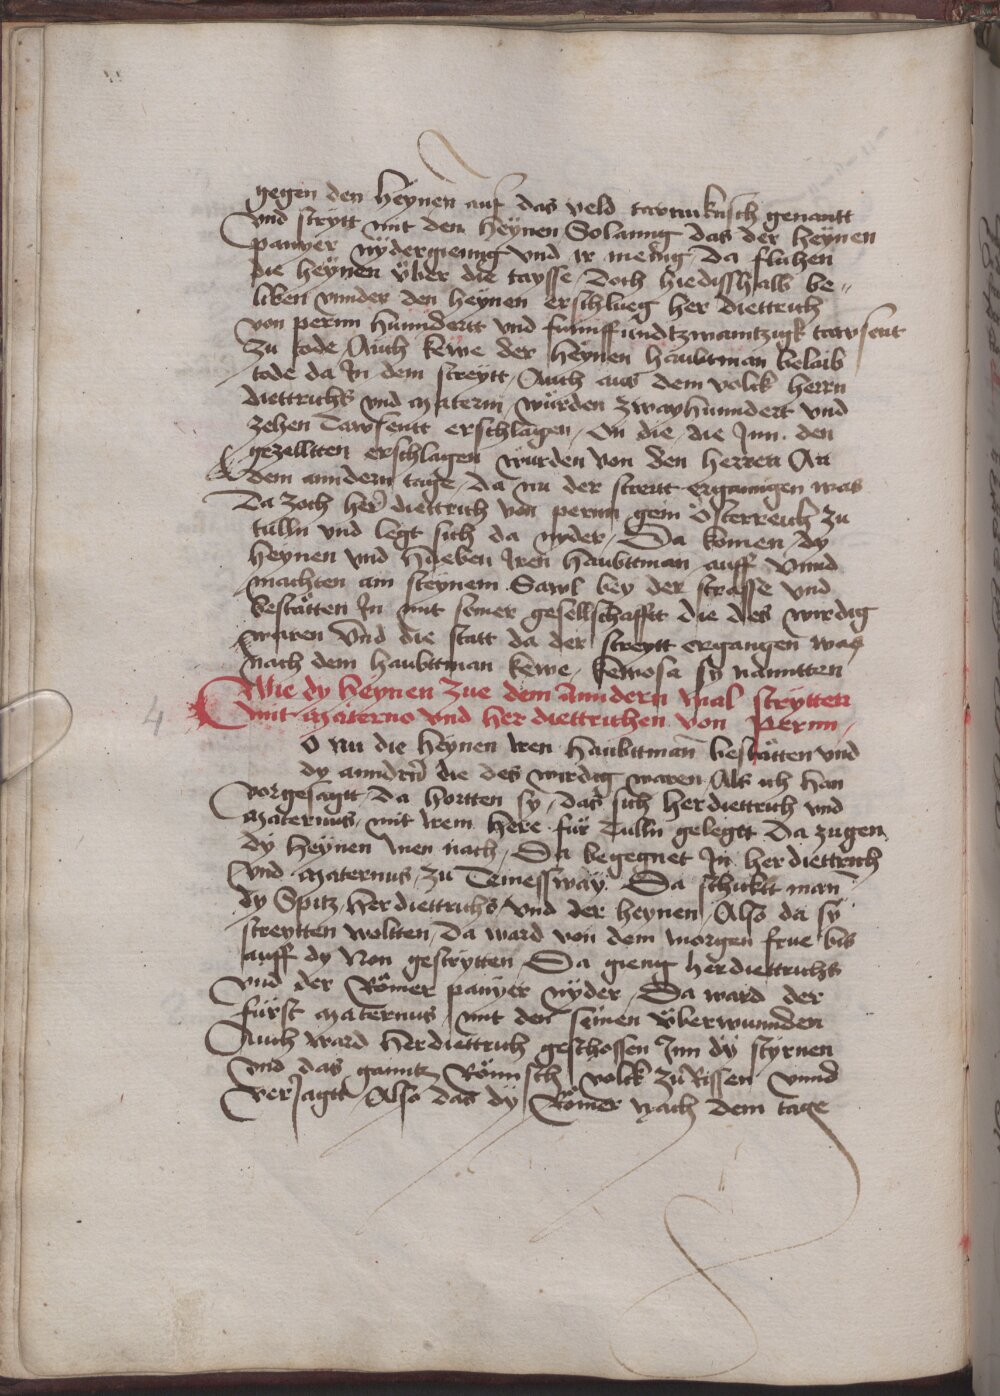 gegen den heÿnen auf das veld tarnnknisch genantt
vnd strytt mit den heÿnen Solanng das der heÿnen
panyer nÿdergienng vnd ir menig da fluhen
die heÿnen über die taysse / Doch hiedisshalb be„
liben vnnder den heÿnen erschlueg her diettrich
von pernn hunndertt vnd funnffundtzwanntzigk tawsent
zu tode / Auch kewe der heÿnen haubtman belaib
tode da Jn dem streytt / Auch aus dem volck herrn
diettrichs vnd maternj / wurden zwayhunndert vnd
zehen Tawsentt erschlagen / On die / die Jnn den
gezelltten erschlagen wurden von den herren An
dem anndern tage / da nu der streitt erganngen was
Da zoch her diettrich von pernn gein Österreich zu
tulln vnd legt sich da nyder / Da komen dy
heynen vnd hueben Jren haubttman auff vnnd
machten ain steynein Sawl bey der strasse vnd
bestätten Jn mit seiner gesellschafft die des wirdig
waren vnd die statt da der streytt ergangen was
nach dem haubttman kewe / kewosa sy nanntten
Wie dy heynen zue dem anndern mal strytten
mit materno vnd her diettrichen von Pernn /
4
O nu die heynen iren haubttman bestätten vnd
dy anndern die des wirdig waren / Als ich han
vorgesagtt / Da hortten sy / das sich her diettrich vnd
maternus / mit irem here für Tulln gelegtt Da zugen
dy heÿnen inen nach / Da begegnet Jn her diettrich
vnd maternus / zu Teinessway / Da schicktt man
dy Spitz her diettrichs / vnd der heynen / Also da sy
streytten woltten / da ward von dem morgen frue bis
auff dy Non gestrytten / Da gieng her diettrichs
vnd der Römer panyer nÿder / Da ward der
fürst maternus / mit den seinen überwunnden
Auch ward her diettrich geschossen Jnn dÿ styrnen
vnd das ganntz Römisch volck zu Rissen vnnd
verJagtt / Also das dÿ Römer nach dem tage